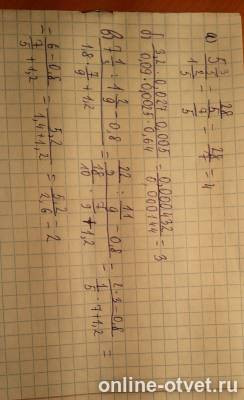 а) 5 3/5 / 1 2/5 = 28/5 / 7/5 = 28/7 = 4
б) 3,2 · 0,027 · 0,005 / 0,09 · 0,0025 · 0,64 = 0,000432 / 0,000144 = 3
в) 7 1/3 : 1 2/9 - 0,8 / 18 · 7/9 + 1,2 = 22/3 : 11/9 - 0,8 / 18/10 · 7/9 + 1,2 = 2 · 3 - 0,8 / 1/5 · 7 + 1,2 =
= 6 - 0,8 / 7/5 + 1,2 = 5,2 / 1,4 + 1,2 = 5,2 / 2,6 = 2
online-otvet.ru